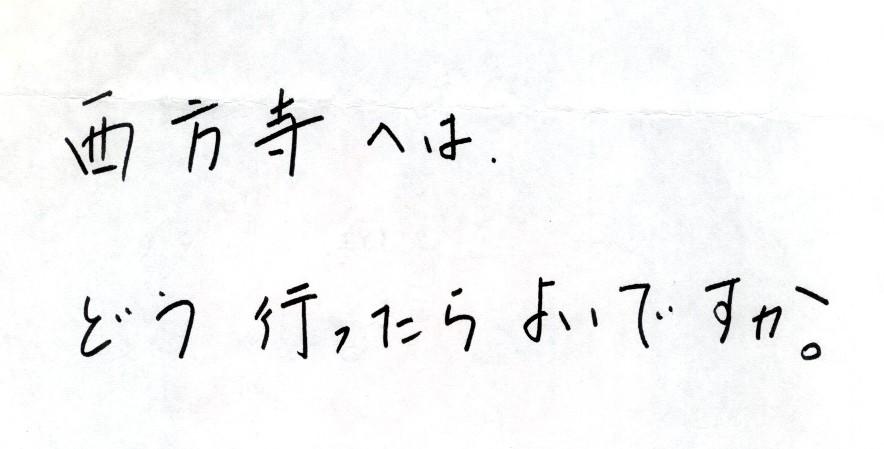 西方寺へは、
どう行ったらよいですか。